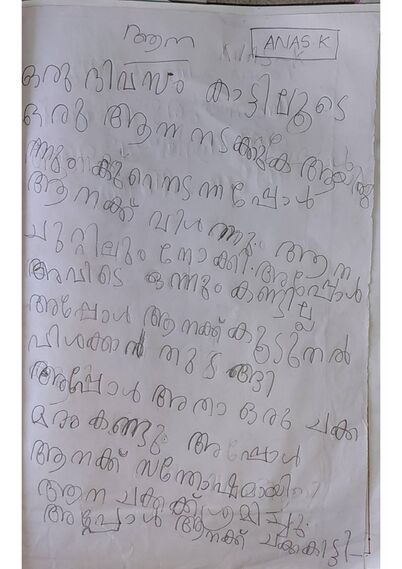 ആന
ANAS K
ഒരു ദിവസം കാട്ടിലൂടെ
ഒരു ആന നടക്കുക ആയിരു
ന്നു കുറെ നടന്നപ്പോൾ
ആനക്ക് വിശന്നു. ആന
ചുറ്റിലും നോക്കി. അപ്പോൾ
അവിടെ ഒന്നും കണ്ടില്ല
അപ്പോൾ ആനക്ക് കൂടുതൽ
വിശക്കാൻ തുടങ്ങി
അപ്പോൾ അതാ ഒരു ചക്ക
മരം കണ്ടു. അപ്പോൾ
ആനക്ക് സന്തോഷമായി
ആന ചക്കക്ക് ശ്രമിച്ചു.
അപ്പോൾ ആനക്ക് ചക്ക കിട്ടി